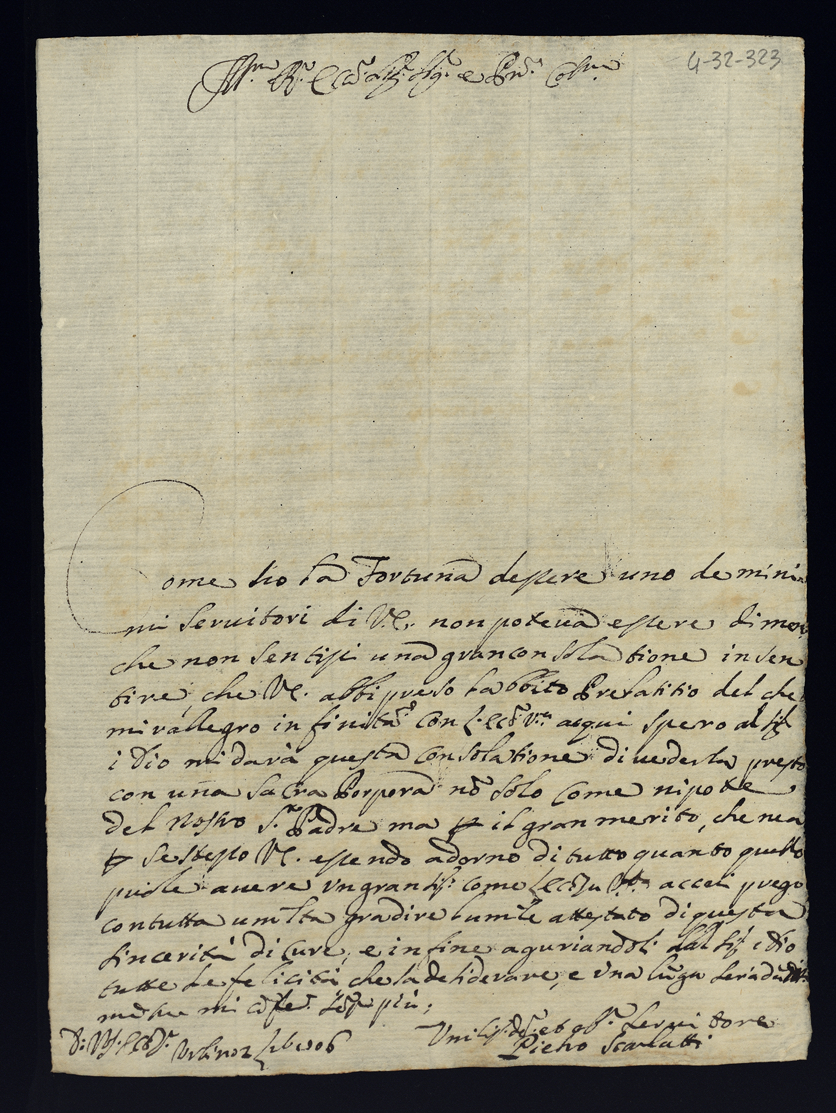 Ill.mo R.mo Ecc.mo Sig.r Sig.r e Pne Col.mo
4-32-323
Come ho la Fortuna dessere uno de mini
mi Seruitori di V.E. non poteua essere di men
che non Sentissi una gran consolatione in sen
tire, che V.E. abbi preso l abbito Prelatitio del che
mi rallegro infinitam.te con
spero al Sig.r
i Dio mi darà questa Consolatione di uederla presto
con una Sacra Porpora nõ solo come nipote
del nostro S.to Padre ma p il gran merito, che nea
p se stesso V.E. essendo adorno di tutto quanto quello
puole auere un gran Sig.r come
prego
con tutta umiltà gradire l umile attestato di questa
Sincerità di Cure, e in fine aguriandoli dal Sig.r i Dio
tutte le felicità che sa desiderare, e una luga
mi
più;
Vrbino
Umiliss. et
Seruitore
Pietro Scarlatti